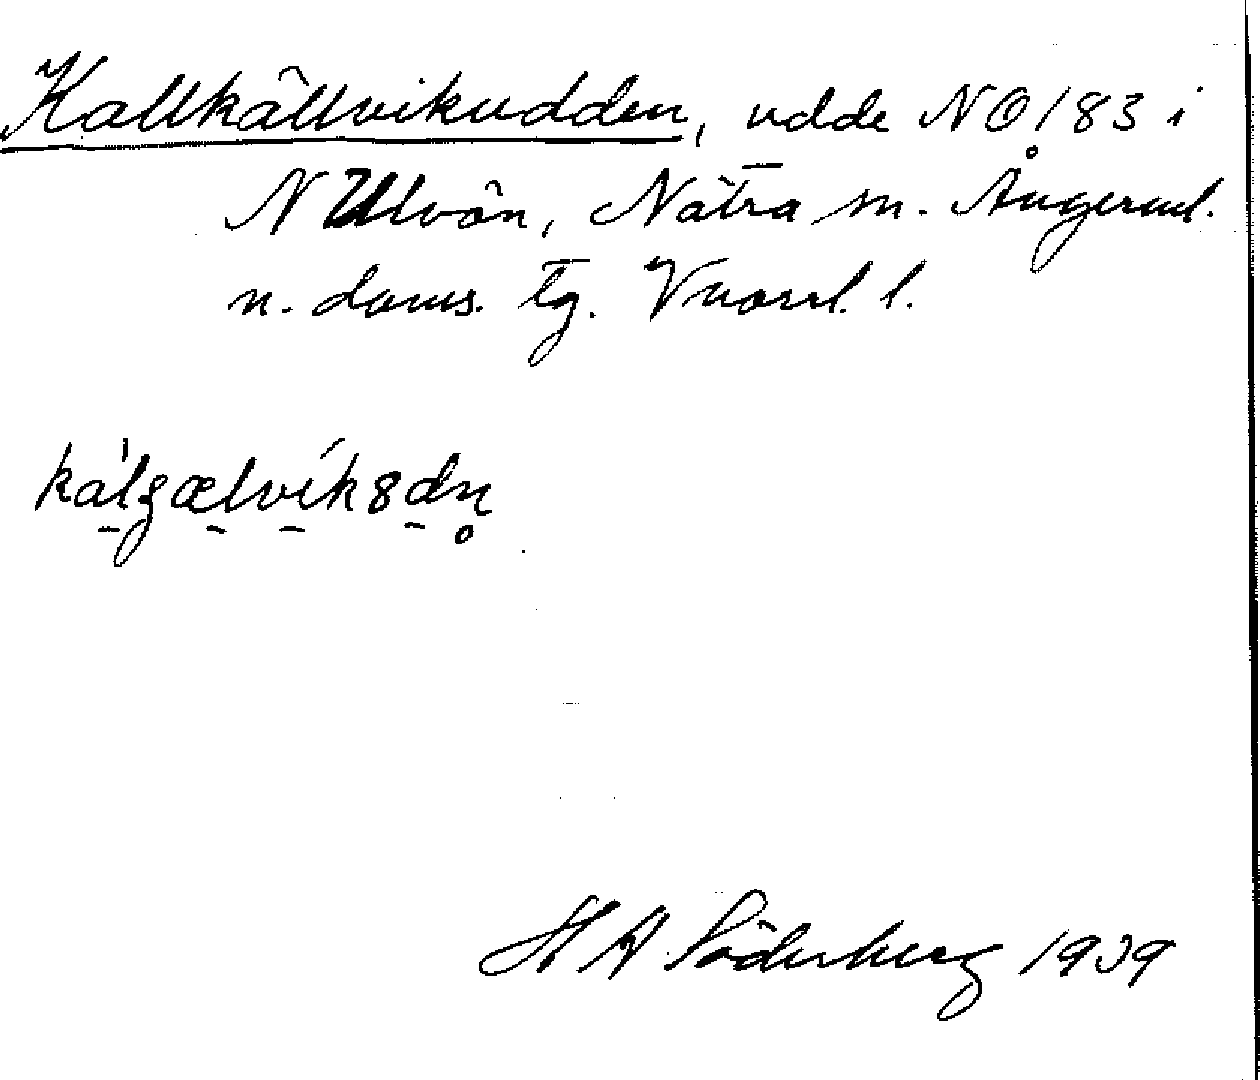 Kallkällvikudden, udde NO/83 i
N Ulvön, Nätra sn. Ångerml.
n. doms. tg. Vnorrl. l.
kálgælvik8dn̥
H A Söderberg 1939